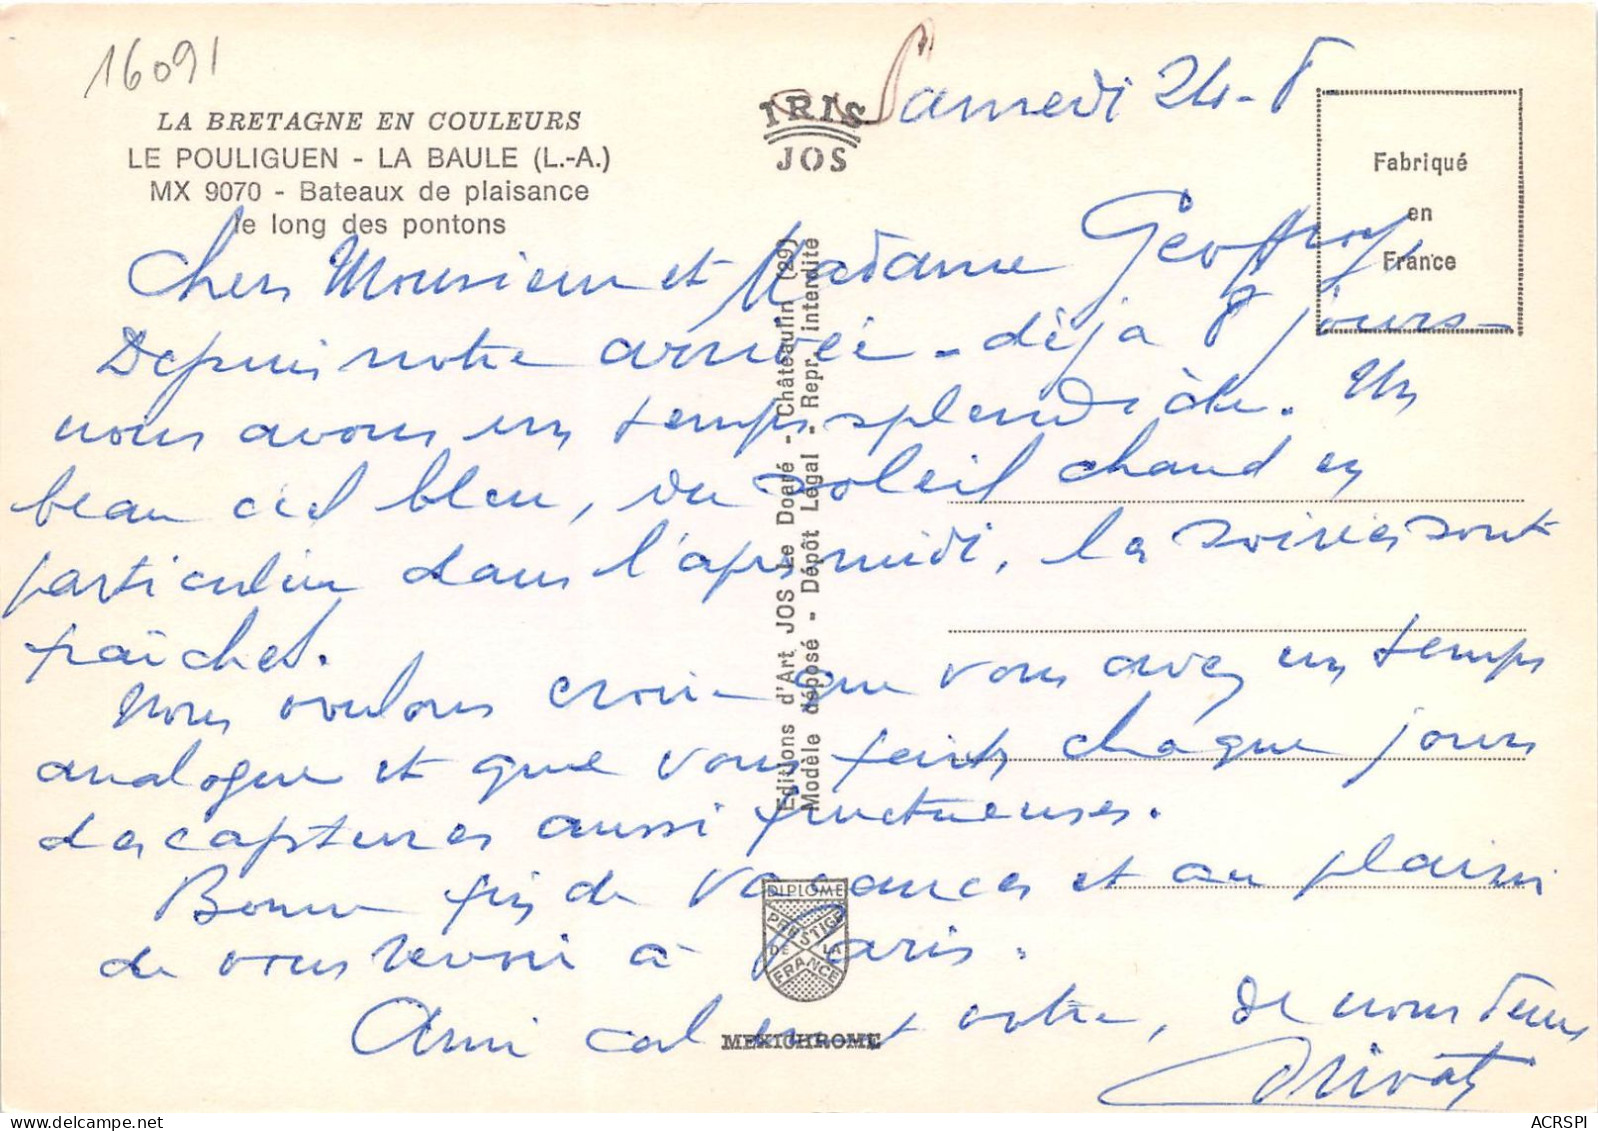 16091
LA BRETAGNE EN COULEURS
LE POULIGUEN - LA BAULE (L.-A.)
MX 9070 - Bateaux de plaisance
le long des pontons
IRIS
JOS
Samedi 24-8
Fabriqué
en
France
Cher Monsieur et Madame Geoffroy
Depuis notre arrivée - déjà 8 jours -
nous avons un temps splendide. Un
beau ciel bleu, un soleil chaud en
particulier dans l'après midi, les soirées sont
fraîches.
Nous voulons croire que vous avez un temps
analogue et que vous faites chaque jours
des captures aussi fructueuses.
Bonne fin de vacances et au plaisir
de vous revoir à Paris.
Amicalement votre, de nous deux
Editions d'Art JOS Le Doaré - Châteaulin (29)
Modèle déposé - Dépôt Légal - Repr. interdite
DIPLOME
PRESTIGE
DE LA
FRANCE
MEXICHROME
ACRSPI